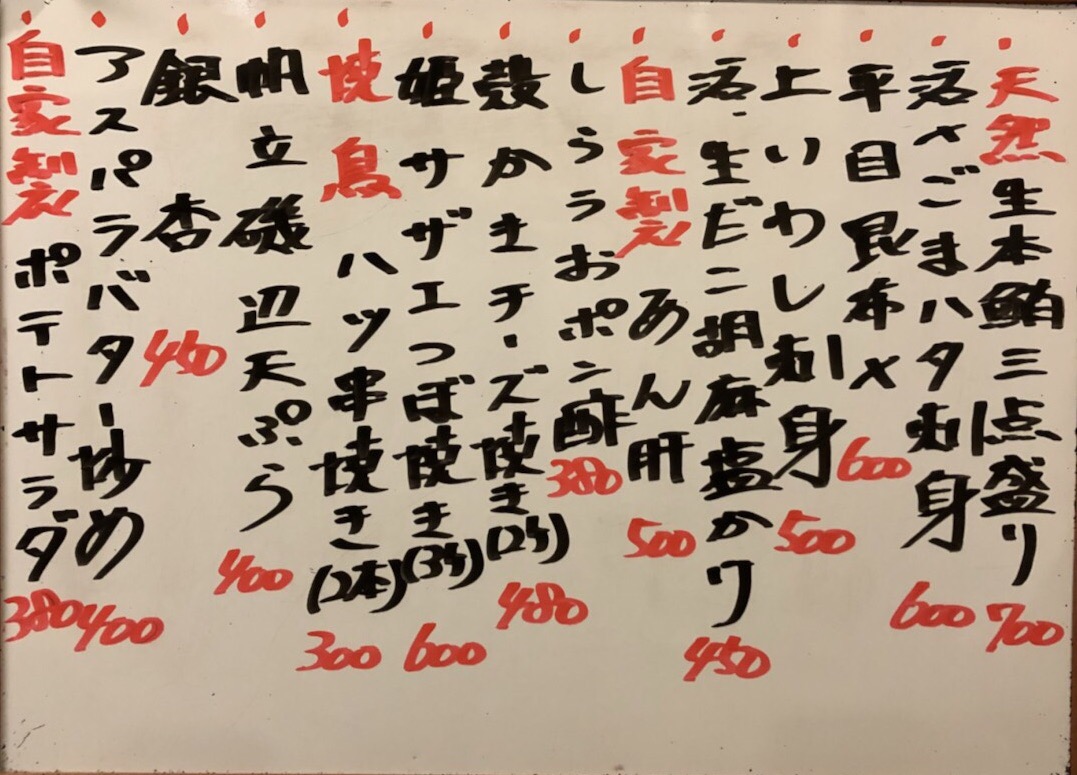 天然生本鮪三点盛り 700
活〆ごまハタ刺身 600
平目昆布〆 600
上いわし刺身 500
活・生だこ胡麻塩かり 450
自家製あん肝 500
しらうおポン酢 380
殻かきチーズ焼き(2ケ) 480
姫サザエつぼ焼き(3ケ) 600
焼鳥 ハツ串焼き(2本) 300
帆立磯辺天ぷら 400
銀杏 450
アスパラバター炒め 400
自家製ポテトサラダ 380